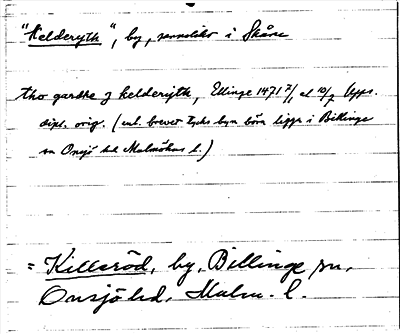 "Kelderyth", by, sannolikt i Skåne
tho gardhe j kelderyth, Ellinge 1471 2/1 el 10/7 Upps.
dipl. orig. (enl. brevet tycks byn böra ligga i Billinge
sn Onsjö hd Malmöhus l.)
= Killeröd, by, Billinge sn,
Onsjö hd, Malm. l.